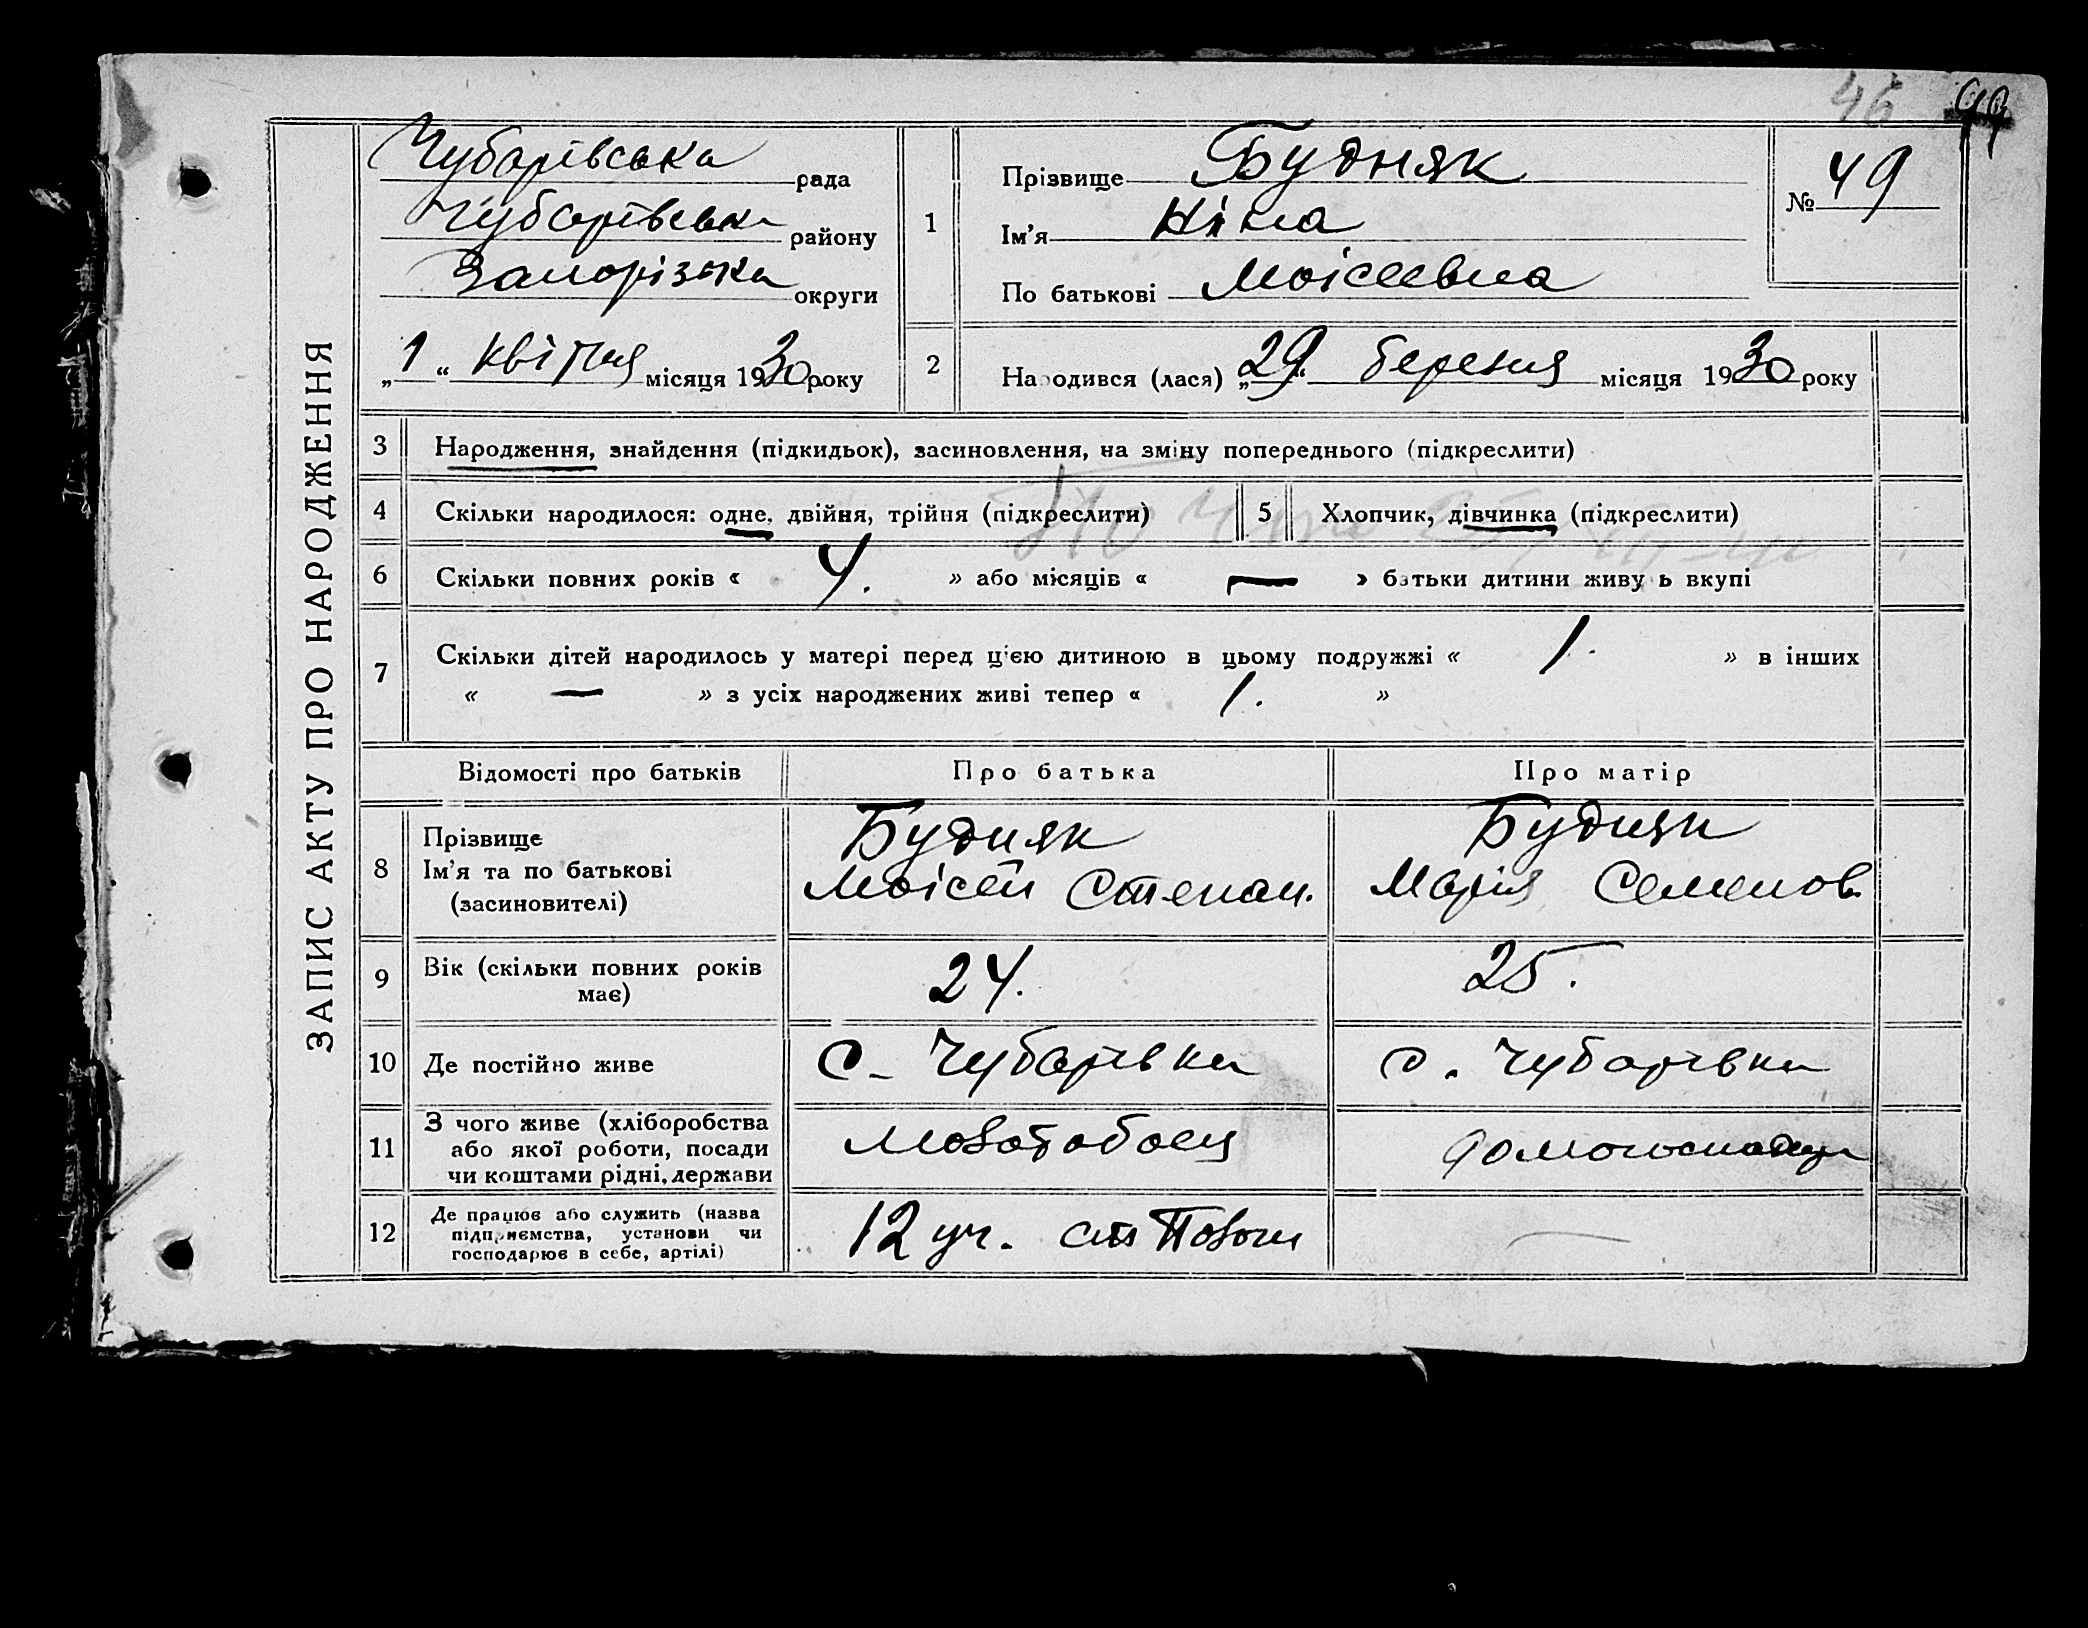 46 99
ЗАПИС АКТУ ПРО НАРОДЖЕННЯ
Чубарівська рада
Чубарівська району
Запорізька округи
„1“ квітня місяця 1930 року
1
Прізвище Будняк
Ім'я Ніна
По батькові Моісеевна
№ 49
2
Народився (лася) „29“ березня місяця 1930 року
3 Народження, знайдення (підкидьок), засиновлення, на зміну попереднього (підкреслити)
4 Скільки народилося: одне, двійня, трійня (підкреслити) 5 Хлопчик, дівчинка (підкреслити)
6 Скільки повних років « 4. » або місяців « — » батьки дитини живуть вкупі
7 Скільки дітей народилось у матері перед цією дитиною в цьому подружжі « 1. » в інших
« — » з усіх народжених живі тепер « 1. »
Відомості про батьків Про батька Про матір
8 Прізвище
Ім'я та по батькові
(засиновителі)
Будняк
Моісей Степан.
Будняк
Марія Семенов.
9 Вік (скільки повних років
має)
24.
25.
10 Де постійно живе с. Чубарівка с. Чубарівка
11 З чого живе (хліборобства
або якої роботи, посади
чи коштами рідні, держави
домогосподар
12 Де працює або служить (назва
підприємства, установи чи
господарює в себе, артілі)
12 уч. ст
—